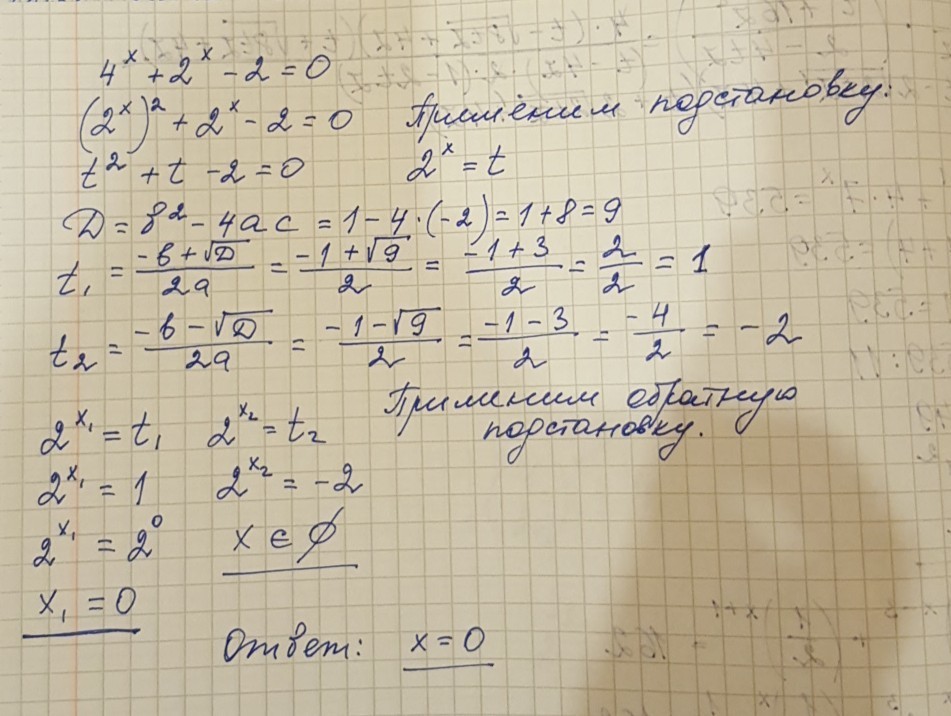 4^x + 2^x - 2 = 0
(2^x)^2 + 2^x - 2 = 0 Применим подстановку:
t^2 + t - 2 = 0 2^x = t
D = b^2 - 4ac = 1 - 4·(-2) = 1 + 8 = 9
t_1 = (-b + √D)/(2a) = (-1 + √9)/2 = (-1 + 3)/2 = 2/2 = 1
t_2 = (-b - √D)/(2a) = (-1 - √9)/2 = (-1 - 3)/2 = -4/2 = -2
Применим обратную
подстановку.
2^{x_1} = t_1 2^{x_2} = t_2
2^{x_1} = 1 2^{x_2} = -2
2^{x_1} = 2^0 x ∈ ∅
x_1 = 0
Ответ: x = 0